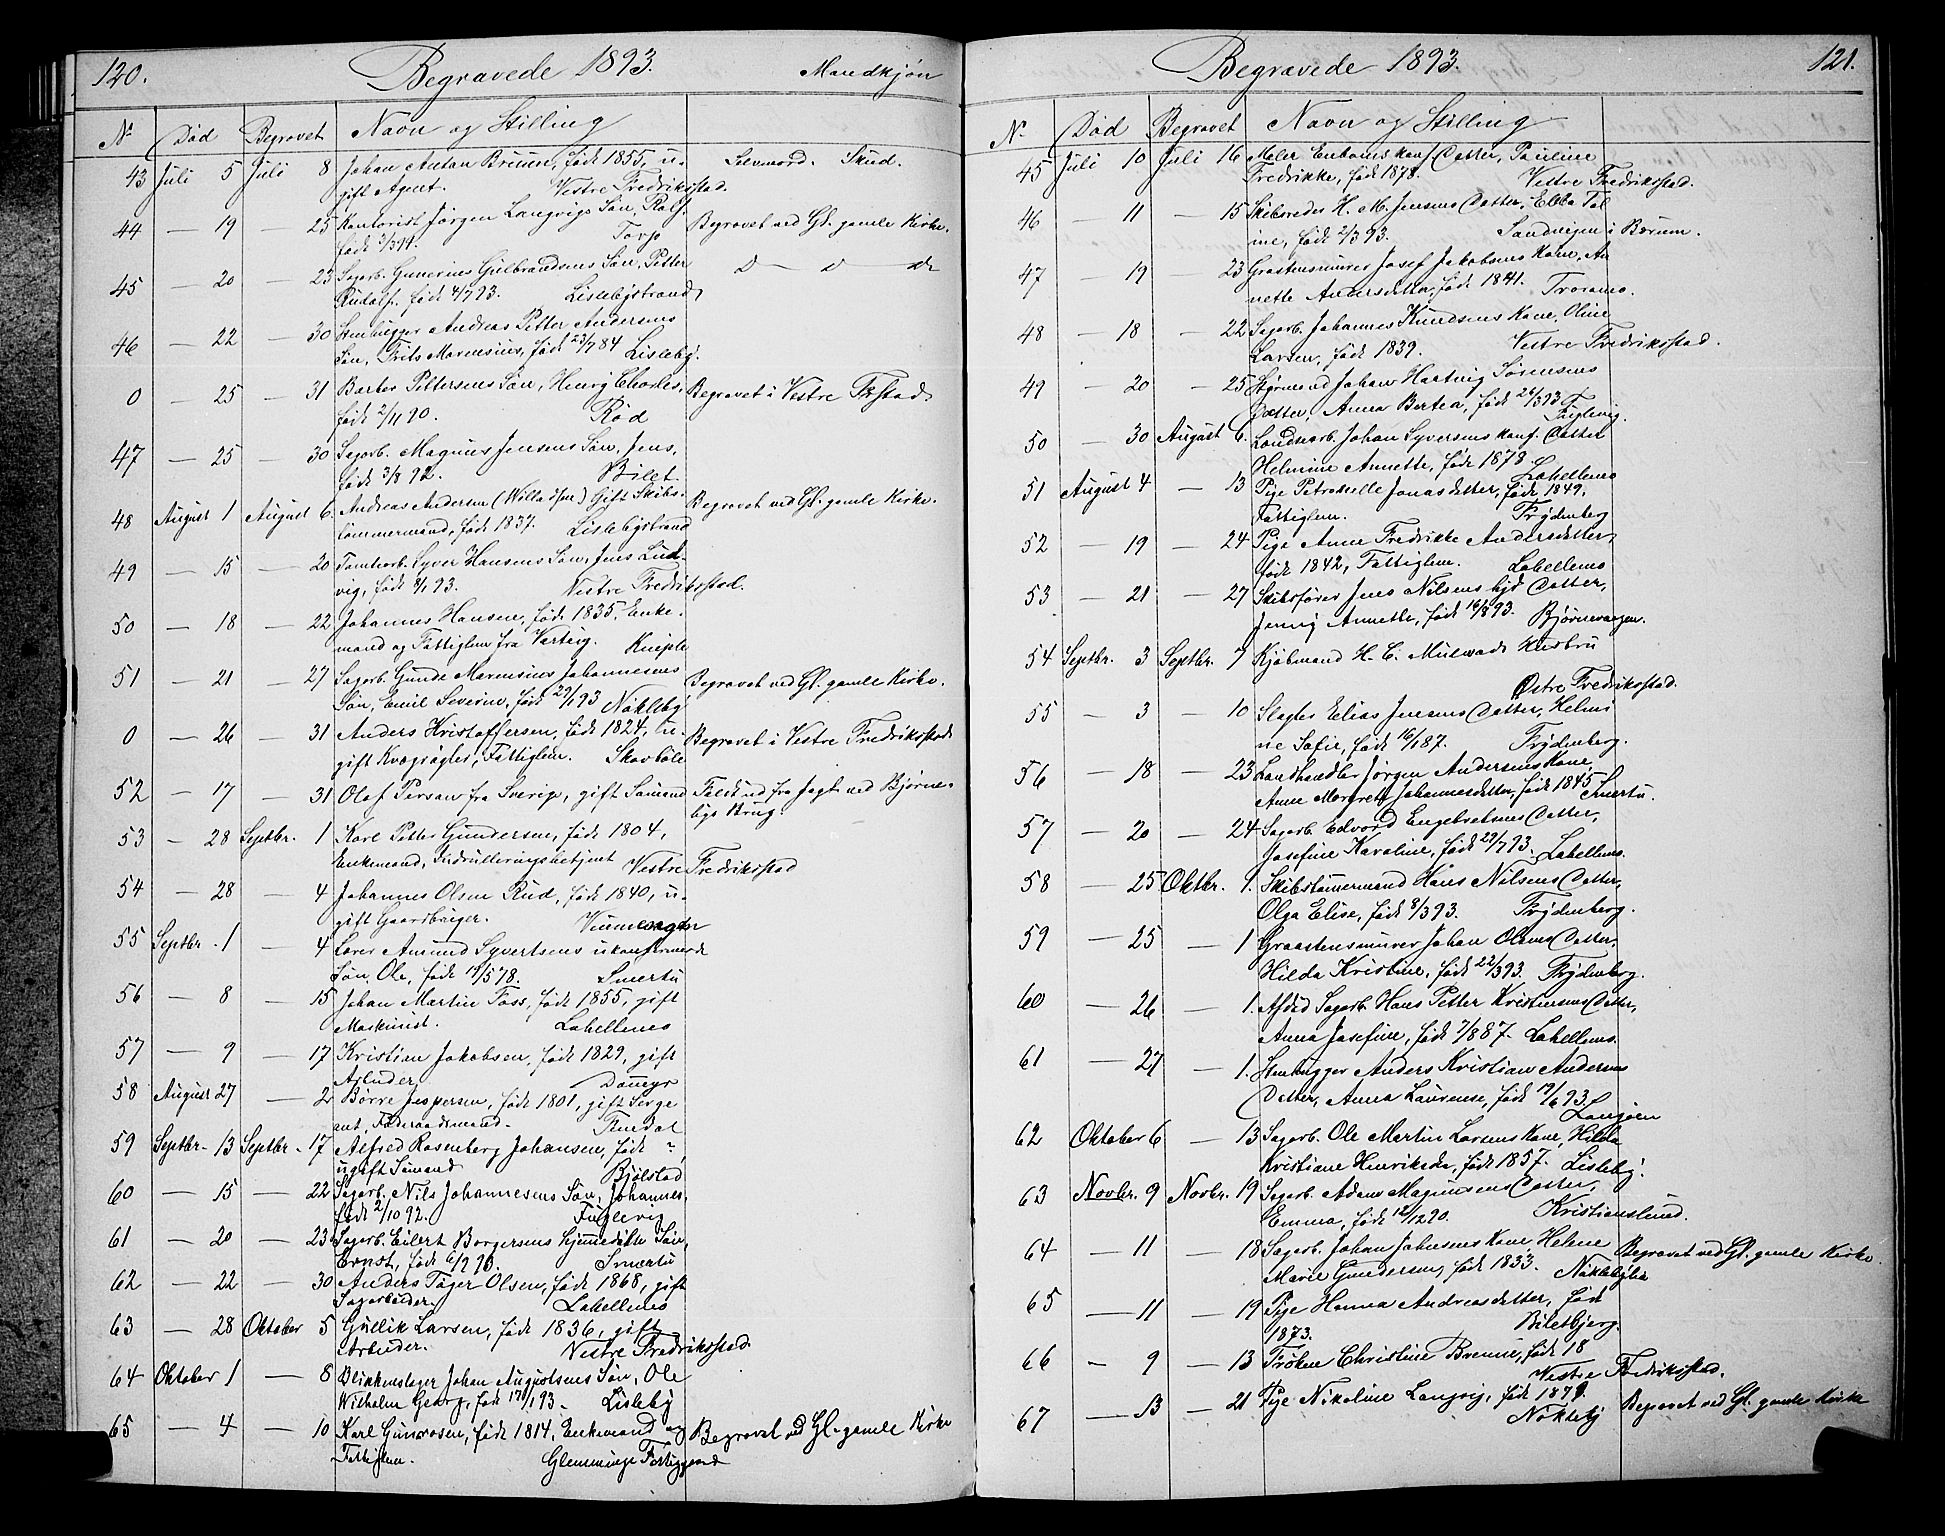 120. Begravede 1893. Mandkjøn
Nr Død Begravet Navn og Stilling
43 Juli 5 Juli 8 Johan Anton Bruun, født 1855, u- Selvmord. Skud.
gift Agent. Vestre Fredriksstad.
44 — 19 — 25 Kontorist Jørgen Langvigs Søn, Rolf, Begravet ved Gl. gamle Kirke.
født Torp
45 — 20 — 23 Sagarb. Gunerius Gulbrandsens Søn, Petter D — o — do
Rudolf, født 4/7 93. Lislebystrand
46 — 22 — 30 Stenhugger Andreas Petter Andersens
Søn, Frits Marensius, født 23/7 84 Lisleby.
0 — 25 — 31 Barber Pettersens Søn, Henry Charles, Begravet i Vestre Fkstad.
født 2/11 90. Rød
47 — 25 — 30 Sagarb. Magnus Jensens Søn, Jens,
født 3/8 92. Bilet.
48 August 1 August 6. Andreas Andersen (Willadsen) Gift Skibs- Begravet ved Gl. gamle Kirke.
tømmermand, født 1837. Lislebystrand
49 — 15 — 20 Tomtearb. Syver Hansens Søn, Jens Lud-
vig, født 8/1 93. Vestre Fredriksstad.
50 — 18 — 22 Johannes Hansen, født 1835, Enke-
mand og Fattiglem fra Varteig. Kniple
51 — 21 — 27 Sagarb. Gunde Marensius Johannesens Begravet ved Gl. gamle Kirke.
Søn, Emil Severin, født 29/1 93 Nøkleby
0 — 26 — 31 Anders Kristoffersen, født 1824, u- Begravet i Vestre Fredriksstad
gift Kvægrøgter, Fattiglem. Skovbøle
52 — 17 — 31 Olof Persson fra Sverig, gift Sømand Faldt ud fra Jagt ved Bjørne-
bys Brug.
53 — 28 Septbr. 1 Karl Petter Gundersen, født 1804,
Enkemand, Indrulleringsbetjent Vestre Fredriksstad
54 — 28 — 4 Johannes Olsen Rud, født 1840, u-
gift Gaardbruger.
55 Septbr. 1 — 4 Lærer Amund Syvertsens ukonfirmerede
Søn, Ole, født 14/5 78. Smertu
56 — 8 — 15 Johan Martin Foss, født 1855, gift
Maskinist. Labellens
57 — 9 — 17 Kristian Jakobsen, født 1829, gift
Arbeider.
58 August 27 — 2 Børre Jespersen, født 1801, gift Serge
ant, Føderaadsmand.
59 Septbr. 13 Septbr. 17 Alfred Rosenberg Johansen, født ?,
ugift Sømand Bjølstad
60 — 15 — 22 Sagarb. Nils Johannesens Søn, Johannes,
født 2/10 92. Fuglevig
61 — 20 — 23 Sagarb. Eilert Borgersens hjemedøbte Søn,
Ernst, født Smertu
62 — 22 — 30 Anders Tøger Olsen, født 1868, gift
Sagarbeider. Labellens
63 — 28 Oktober 5 Gullik Larsen, født 1836, gift
Arbeider. Vestre Fredriksstad.
64 Oktober 1 — 8 Blikkenslager Johan Augustsens Søn, Ole
Wilhelm Georg, født 17/1 93. Lisleby
65 — 4 — 10 Karl Gunrosen, født 1814, Enkemand og Begravet ved Gl. gamle Kirke
Fattiglem. Glemminge Fattiggaard
Begravede 1893. 121.
Nr. Død Begravet Navn og Stilling
45 Juli 10 Juli 16 Maler Enboms konf. Datter, Pauline
Fredrikke, født 1878. Vestre Fredriksstad.
46 — 11 — 15 Skibsreder H. M. Jensens Datter, Ebba Tal
ine, født 2/3 93. Sandvigen i Bærum.
47 19 — 23 Graastensmurer Josef Jakobsens Kone, An
nette Andersdatter, født 1841. Traramo.
48 — 18 — 22 Sagarb. Johannes Knudsens Kone, Oline
Larsen, født 1839. Vestre Fredriksstad.
49 — 20 — 25 Styrmand Johan Hartvig Sørensens
Datter, Anna Bertea, født 26/3 93 Fuglevig.
50 — 30 August 6. Landsarb. Johan Syversens konf. Datter
Helmine Annette, født 1878 Labellens
51 August 4 — 13 Pige Petronelle Jonasdatter, født 1849,
Fattiglem. Frydenberg
52 — 19 — 24 Pige Anne Fredrikke Andersdatter,
født 1842, Fattiglem. Labellens
53 — 21 — 27 Skibsfører Jens Nilsens hjd Datter,
Jenny Annette, født 16/8 93. Bjørnevangen.
54 Septbr. 3 Septbr. 7 Kjøbmand H. C. Mulvads Hustru
Østre Fredriksstad.
55 — 3 — 10 Slagter Elias Jensens Datter, Helmi
ne Sofie, født 16/1 87. Frydenberg.
56 — 18 — 23 Landhandler Jørgen Andersens Kone,
Anne Margrethe Johannesdatter, født 1845 Smertu.
57 — 20 — 24 Sagarb. Edvard Engebretsens Datter,
Josefine Karoline, født 29/7 93. Labellens.
58 — 25 Oktbr. 1. Skibstømermand Hans Nilsens Datter,
Olga Elise, født 8/3 93. Frydenberg.
59 — 25 — 1 Graastensmurer Johan Olsens Datter,
Hilda Kristine, født 22/3 93. Frydenberg.
60 — 26 — 1. Afdød Sagarb. Hans Petter Kristiansens Datter,
Anna Josefine, født 7/8 87. Labellens.
61 — 27 — 1. Stenhugger Anders Kristian Andersens
Datter, Anna Laurense, født 17/6 93. Langøien
62 Oktober 6 — 13 Sagarb. Ole Martin Larsens Kone, Hilda
Kristiane Henriksda, født 1857. Lisleby.
63 Novbr. 9 Novbr. 19 Sagarb. Adam Magnussens Datter,
Emma, født 12/12 90. Kristianslund.
64 — 11 — 18 Sagarb. Johan Johnsens Kone Helene Begravet ved Gl. gamle Kirke
Marie Gundersen, født 1833. Nøklebylia
65 — 11 — 19 Pige Hanna Andreasdatter, født
1873. Biletbjerg.
66 — 9 — 13 Frøken Christine Bremer, født 18
Vestre Fredriksstad.
67 — 13 — 21 Pige Nikoline Langvig, født 1879. Begravet ved Gl. gamle Kirke
Nøkleby